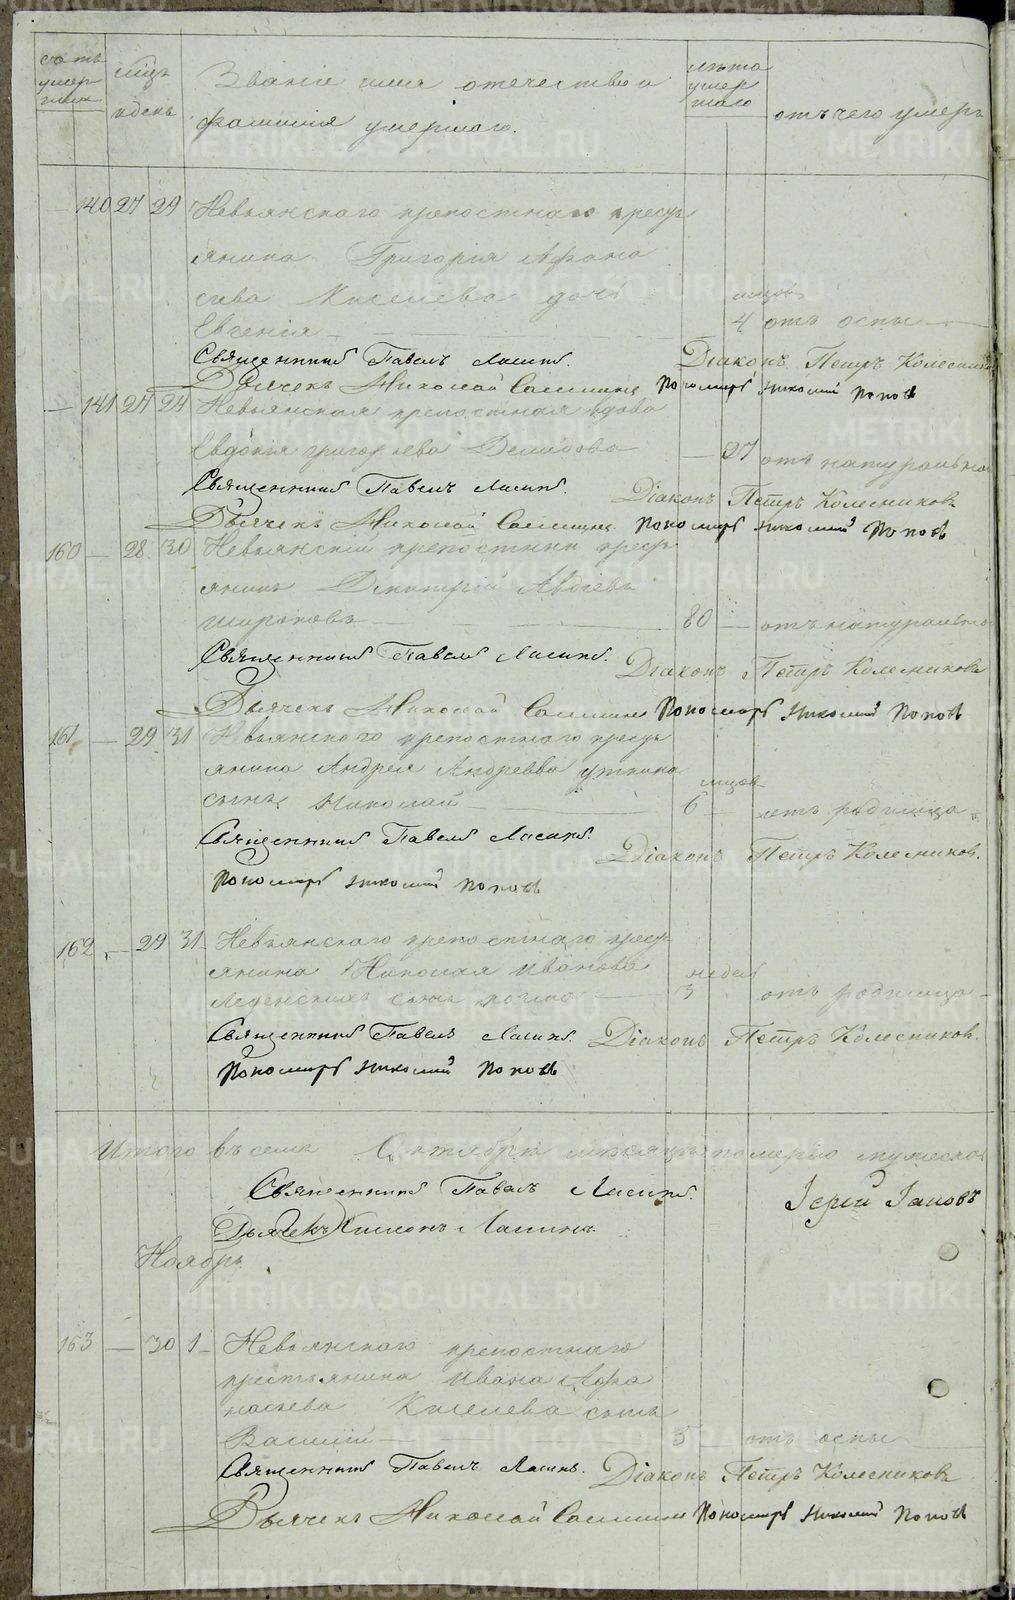 счетъ умершихъ
мѣсяцъ и день
Званіе имя отечество и
фамилія умершаго.
лѣта умершаго
отъ чего умеръ
140 27 29 Невьянскаго крепостнаго кресть
янина Григорія Афана
сьева Киселева дочь мѣсяцов
Евгенія 4 отъ оспы
Священникъ Павелъ Діаконъ Петръ Колесниковъ
Дьячекъ Николай Пономарь Николай Поповъ
141 24 Невьянская крепостная вдова
Евдокія Григорьева Демидова 27 отъ натуральной
Священникъ Павелъ Діаконъ Петръ Колесниковъ
Дьячекъ Николай Пономарь Николай Поповъ
160 28 30 Невьянскій крепостный кресть
янинъ Дмитрій Авдѣевъ
Широковъ 80 отъ натуральной
Священникъ Павелъ Діаконъ Петръ Колесниковъ
Дьячекъ Николай Пономарь Николай Поповъ
161 29 31 Невьянскаго крепостнаго кресть
янина Андрея Андреева Уткина мѣсяцов
сынъ Николай 6 отъ родимца
Священникъ Павелъ Діаконъ Петръ Колесниковъ.
Пономарь Николай Поповъ
162 29 31 Невьянскаго крепостнаго кресть
янина Николая Иванова недел
сынъ 3 отъ родимца
Священникъ Павелъ Діаконъ Петръ Колесниковъ.
Пономарь Николай Поповъ
Итого въ семъ Октябрѣ месяцѣ померло мужеска
Священникъ Павелъ Іерей
Дьячекъ
Ноябрь
163 30 1 Невьянскаго крепостнаго
крестьянина Ивана Афа
насьева Киселева сынъ
Василій 3 отъ оспы
Священникъ Павелъ Діаконъ Петръ Колесниковъ
Дьячекъ Николай Пономарь Николай Поповъ
METRIKI.GASO-URAL.RU